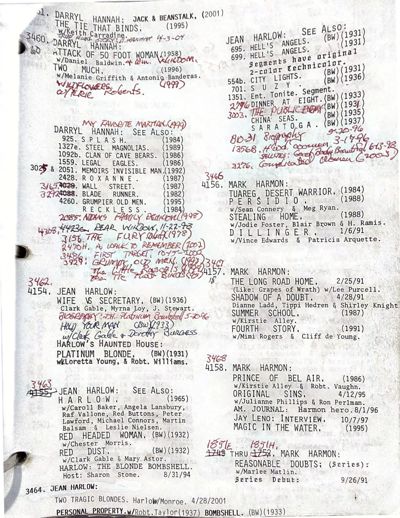 DARRYL HANNAH: JACK & BEANSTALK, (2001)
THE TIE THAT BINDS. (1995)
w/Keith Carradine
3460. DARRYL HANNAH:
ATTACK OF 50 FOOT WOMAN (1958)
w/Daniel Baldwin
TWO MUCH. (1996)
w/Melanie Griffith & Antonio Banderas.
WILDFLOWERS (1999)
w/ERIC Roberts.
MY FAVORITE MARTIAN (1999)
DARRYL HANNAH: SEE ALSO:
925. SPLASH. (1984)
1327e. STEEL MAGNOLIAS. (1989)
1092b. CLAN OF CAVE BEARS. (1986)
1559. LEGAL EAGLES (1986)
2051. MEMOIRS INVISIBLE MAN.(1992)
2428. ROXANNE. (1987)
WALL STREET. (1987)
BLADE RUNNER. (1982)
4260. GRUMPIER OLD MEN. (1995)
RECKLESS. (1984)
2085. ADDAMS FAMILY REUNION (1998)
REAR WINDOW, 11-22-98
3156. THE FURY (1978)
2470H. A WALK TO REMEMBER (2002)
3486. FIRST TARGET, 10-17-2000
GRUMPY OLD MEN (1993)
3462.
4154. JEAN HARLOW:
WIFE VS SECRETARY. (BW)(1936)
Clark Gable, Myrna Loy, J. Stewart.
HOLD YOUR MAN (BW)(1933)
w/Clark Gable & Dorothy Burgess
HARLOW'S HAUNTED HOUSE:
PLATINUM BLONDE. (BW)(1931)
w/Loretta Young, & Robt. Williams.
3463
4155. JEAN HARLOW: SEE ALSO:
HARLOW. (1965)
w/Carol Baker, Angela Lansbury,
Raf Vallone, Red Buttons, Peter
Lawford, Michael Connors, Martin
Balsam & Leslie Nielsen.
RED HEADED WOMAN. (BW)(1932)
w/Chester Morris.
RED DUST. (BW)(1932)
w/Clark Gable & Mary Astor.
HARLOW: THE BLONDE BOMBSHELL.
Host: Sharon Stone. 8/31/94
3464. JEAN HARLOW:
TWO TRAGIC BLONDES. Harlow/Monroe. 4/28/2001
PERSONAL PROPERTY.w/Robt.Taylor(1937) BOMBSHELL. (BW)(1933)
JEAN HARLOW: SEE ALSO:
699. HELL'S ANGELS. (BW)(1931)
695. HELL'S ANGELS. (BW)(1931)
Segments have original
2-color Technicolor.
554b. CITY LIGHTS. (BW)(1931)
701. SUZY. (BW)(1936)
1351. Ent. Tonite. Segment.
2796 DINNER AT EIGHT.(BW)(1933)
3003. THE PUBLIC ENEMY (BW)(1931)
CHINA SEAS. (BW)(1935)
SARATOGA. (BW)(1937)
3465
4156. MARK HARMON:
TUAREG, DESERT WARRIOR. (1984)
PERSIDIO. (1988)
w/Sean Connery, & Meg Ryan.
STEALING HOME. (1988)
w/Jodie Foster, Blair Brown & H. Ramis.
DILLINGER. (1991)
w/Vince Edwards & Patricia Arquette.
4157. MARK HARMON:
THE LONG ROAD HOME. 2/25/91
(like: Grapes of Wrath) w/Lee Purcell.
SHADOW OF A DOUBT. 4/28/91
Dianne Ladd, Tippi Hedren & Shirley Knight
SUMMER SCHOOL. (1987)
w/Kirstie Alley.
FOURTH STORY. (1991)
w/Mimi Rogers & Cliff de Young.
3468
4158. MARK HARMON:
PRINCE OF BEL AIR. (1986)
w/Kirstie Alley & Robt. Vaughn.
ORIGINAL SINS. 4/12/95
w/Julianne Phillips & Ron Perlman.
AM. JOURNAL: Harmon hero. 8/1/96
JAY LENO: INTERVIEW. 10/7/97
MAGIC IN THE WATER. (1995)
THRU MARK HARMON:
REASONABLE DOUBTS: (Series):
w/Marlee Matlin.
Series Debut: 9/26/91